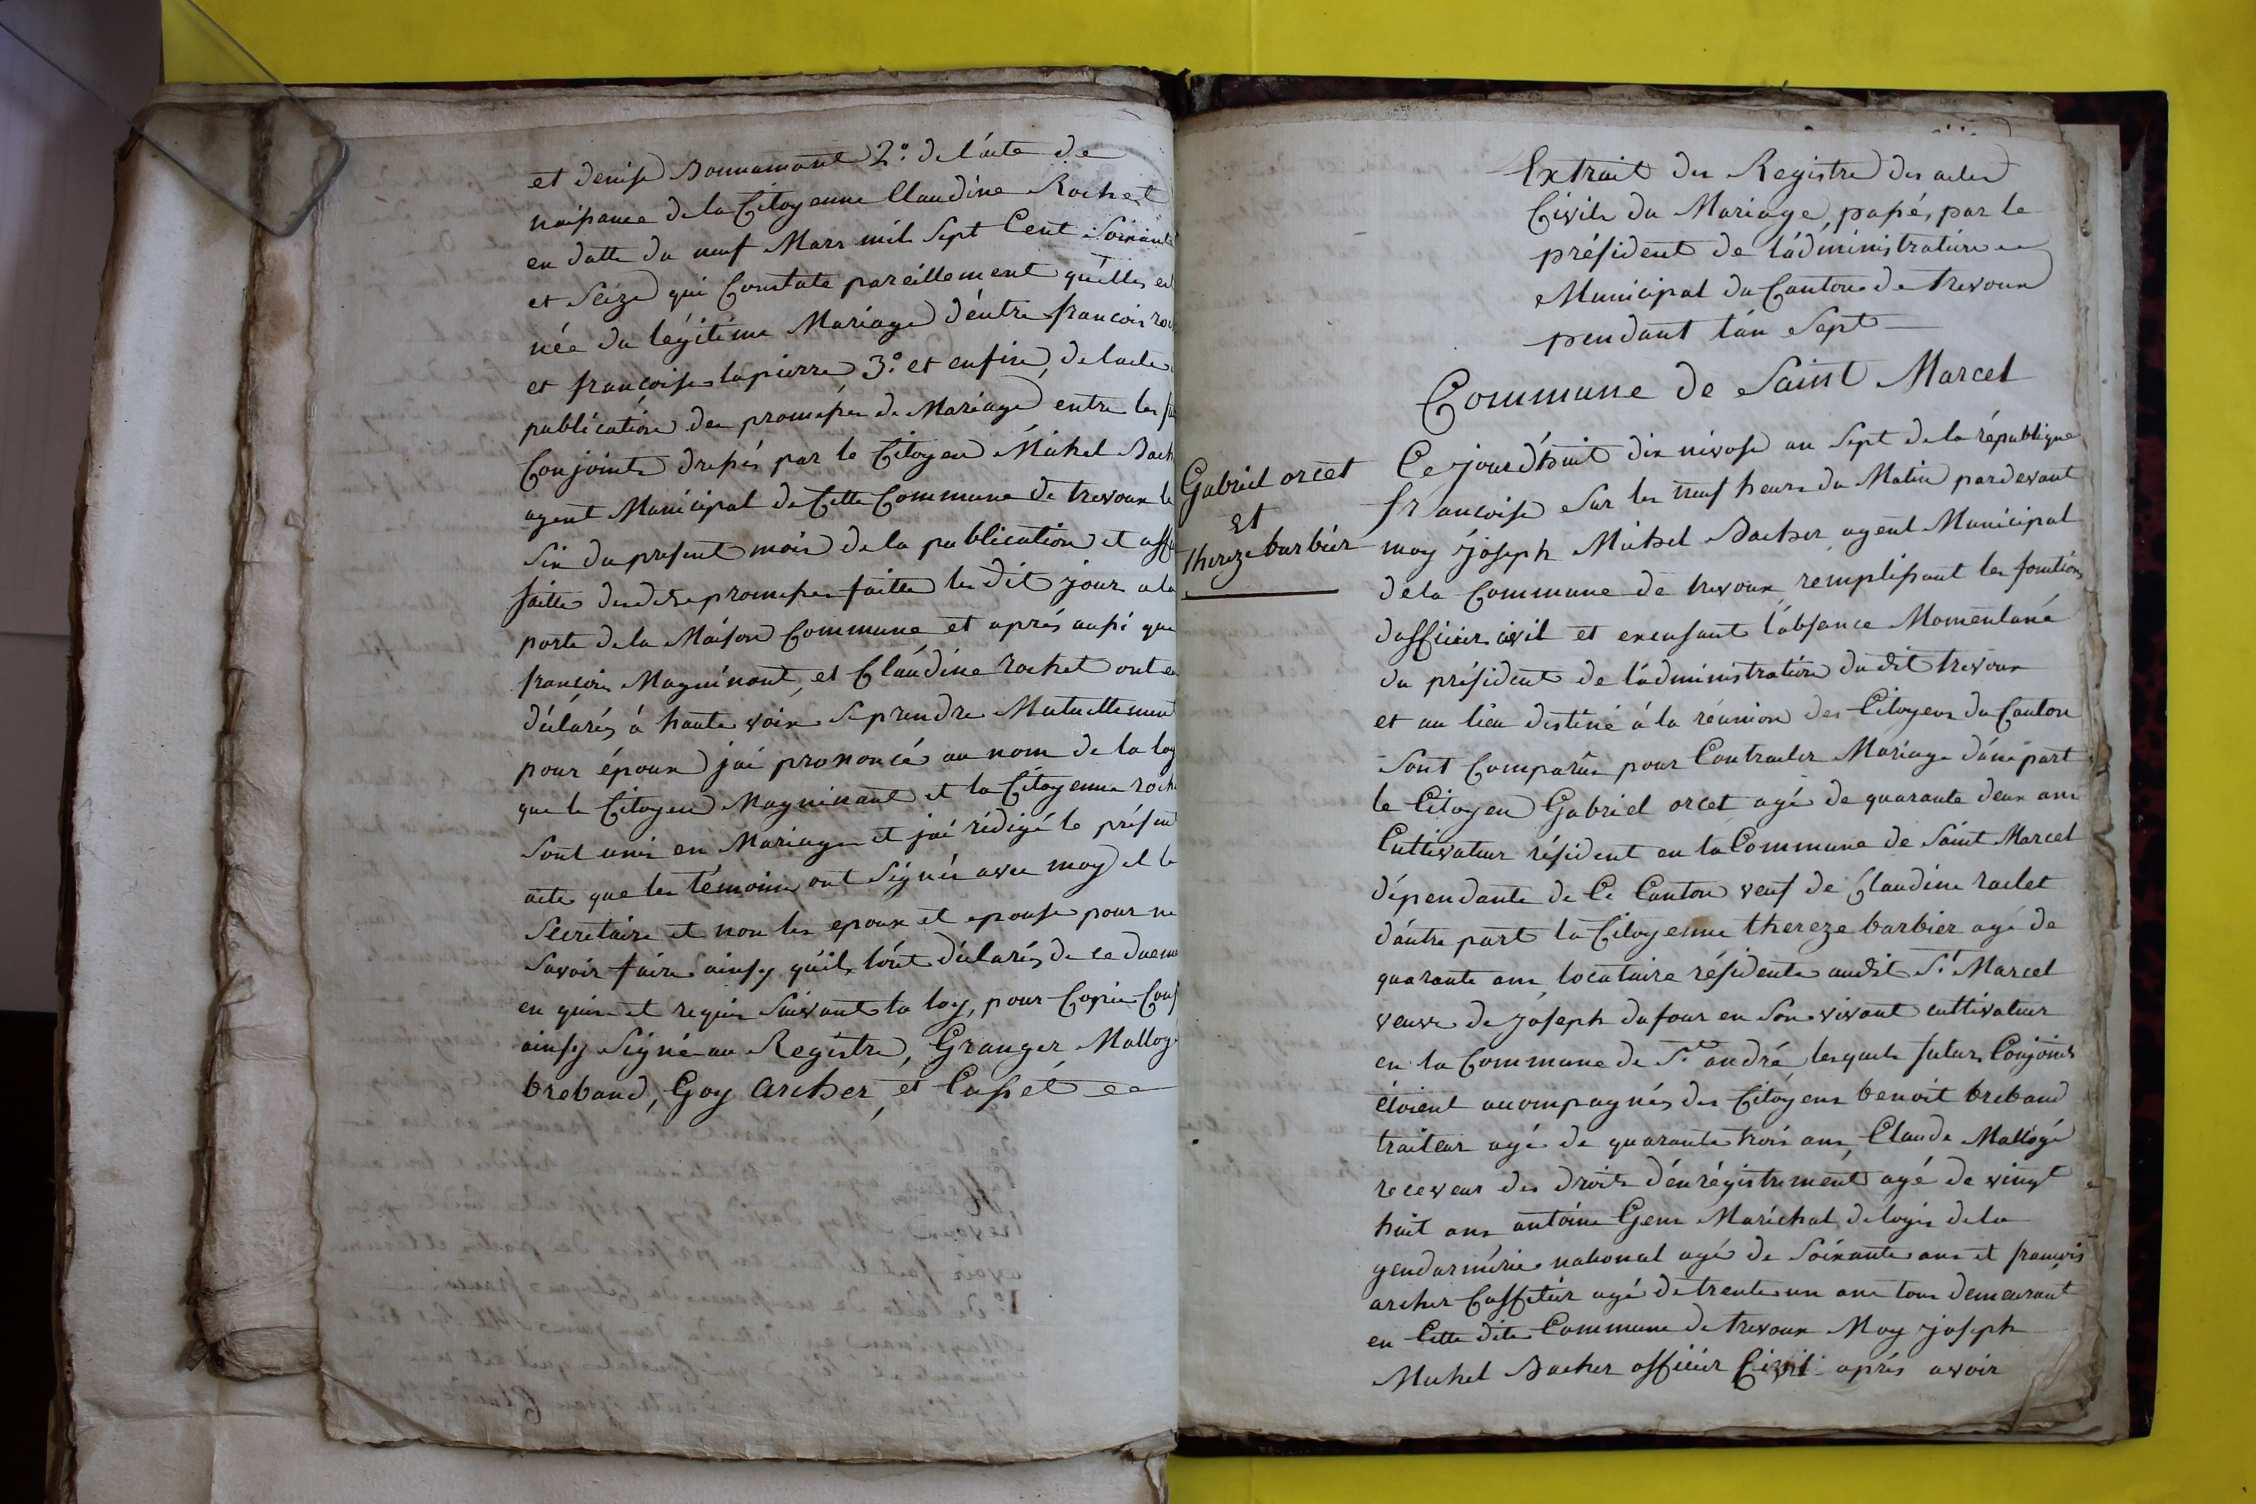 et denise Bonnamont 2.º de l'acte de
naissance de la Citoyenne Claudine Rochet
en datte du neuf Mars mil Sept Cent Soixante
et Seize qui Constate pareillement qu'elles est
née du légitime Mariage d'entre francois roc
et françoise lapierre, 3.º et enfin, de lacte
publication des promesses de Mariage entre les fu
Conjoints dressés par le Citoyen Michel Bach
agent Municipal de Cette Commune de trevoux le
Six du present mois de la publication et affi
faitte desdittes promesses faitte le dit jour a la
porte de la Maison Commune et après aussi que
françois Magninant, et Claudine rochet ont eu
déclarés à haute voix Se prendre Mutuellement
pour époux jai prononcé au nom de la loy
que le Citoyen Magninant et la Citoyenne roch
Sont unis en Mariage et jai rédigé le présent
acte que les témoins ont Signés avec moy et le
Secretaire et non les epoux et epouse pour ne
Savoir faire ainsy quils l'ont déclarés de ce duem
en quis et requis Suivant la loy, pour Copie Conf
ainsy Signé au Registre, Granger, Mallogé
breband, Goy archer, et Cassét
Extrait des Registre des actes
Civils du Mariage, passés, par le
président de l'administration
Municipal du Canton de trevoux
pendant l'an Sept
Commune de Saint Marcel
Gabriel orcet
Et
thereze barbier
Ce jourd'huit dix nivose an Sept de la république
françoise Sur les neuf heures du Matin pardevant
moy joseph Michel Bacher agent Municipal
dela Commune de trevoux remplissant les fonctions
d'officier civil et excusant l'absance Momentané
du président de l'administration du dit trevoux
et au lieu destiné à la réunion des Citoyens du Canton
Sont Comparûs pour Contracter Mariage d'une part
le Citoyen Gabriel orcet agé de quarante deux ans
Cultivateur résident en la Commune de Saint Marcel
dépendante de Ce Canton veuf de Claudine raclet
d'autre part la Citoyenne thereze barbier agé de
quarante ans locataire résidente audit S.t Marcel
veuve de joseph dufour en Son vivant cultivateur
en la Commune de S.t andré, lesquels futurs Conjoints
étoient accompagnés des Citoyens benoit breband
traiteur agé de quarante trois ans, Claude Mallogé
receveur des droits d'enrégistrement agé de vingt
huit ans antoine Gens Maréchal delogis dela
gendarmérie national agé de Soixante ans et françois
archer Caffetier agé de trente un ans tous demeurant
en Cette dite Commune de trevoux Moy joseph
Michel Bacher officier Civil après avoir